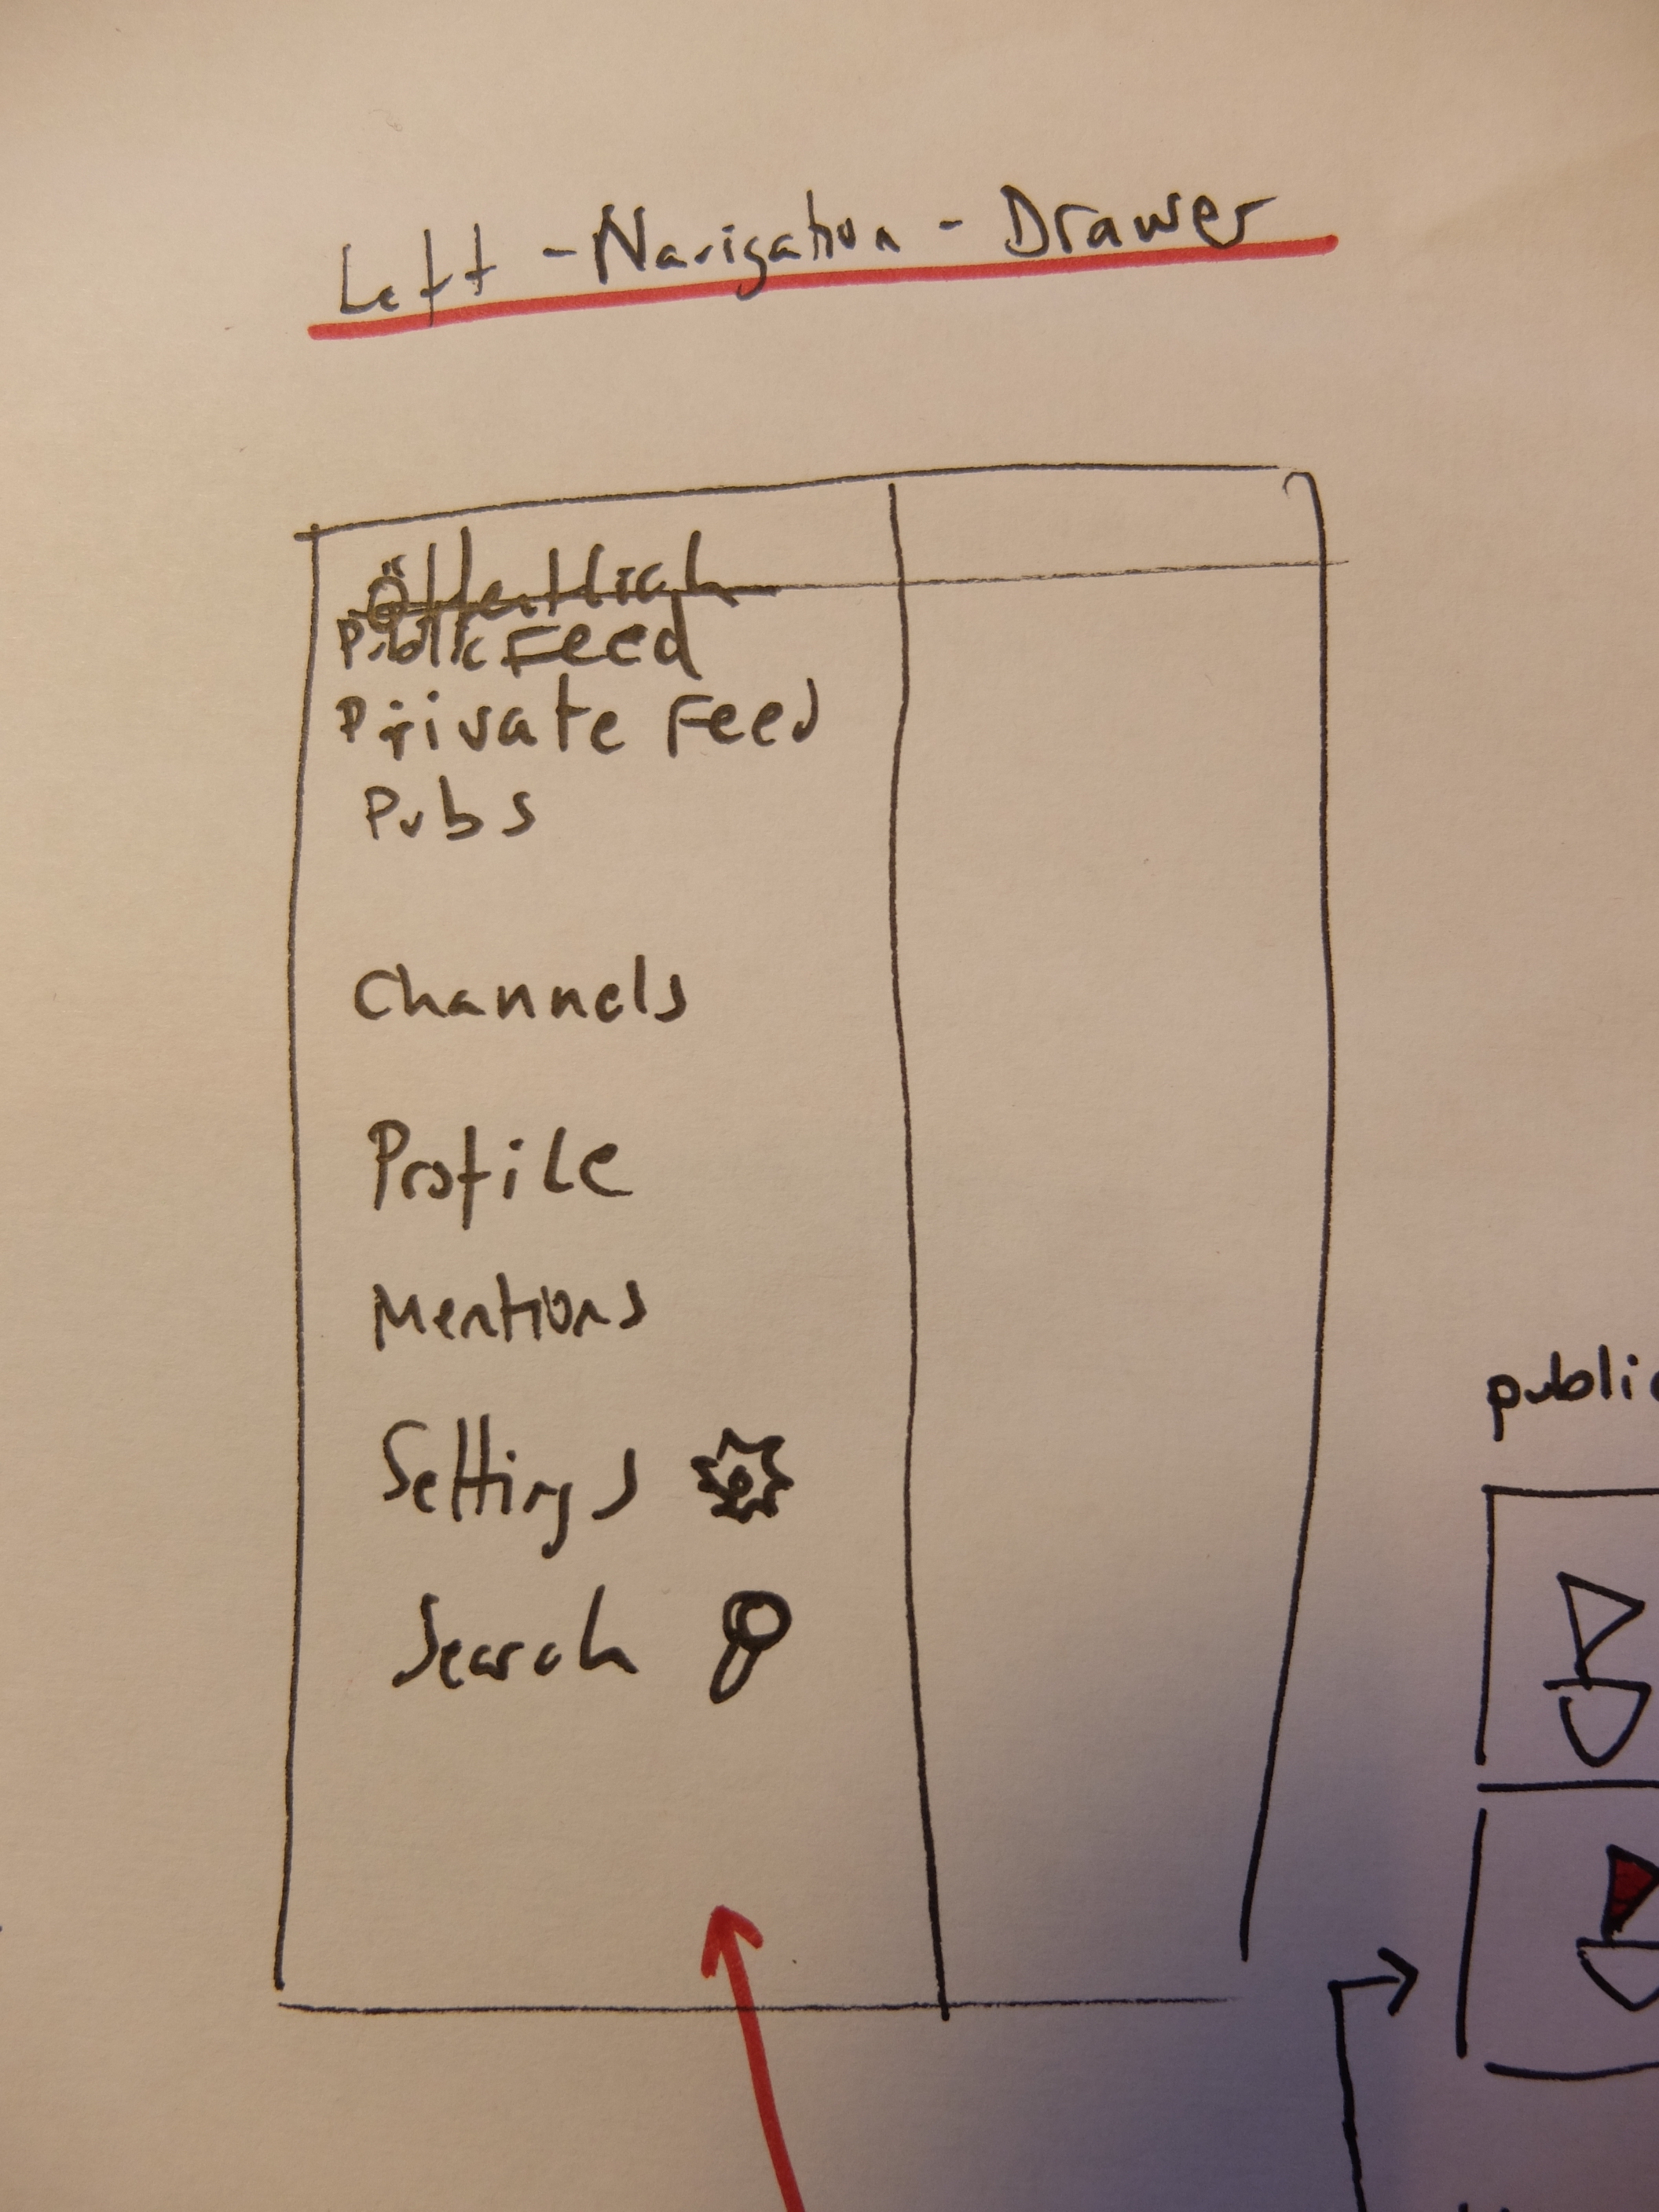 Left-Navigation-Drawer
Öffentlich
Public Feed
Private Feed
Pubs
Channels
Profile
Mentions
Settings
Search
public